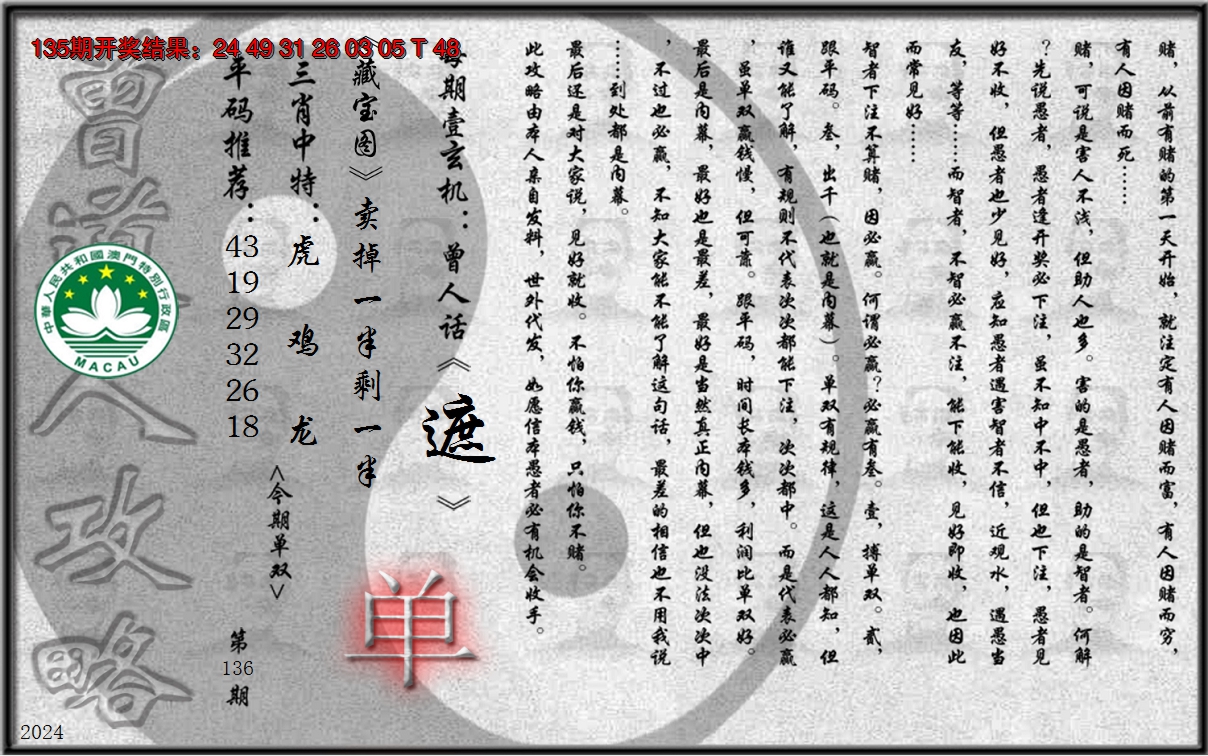 135期开奖结果：24 49 31 26 03 05 T 48
赌，从前有赌的第一天开始，就注定有人因赌而富，有人因赌而穷，
有人因赌而死……
赌，可说是害人不浅，但助人也多。害的是愚者，助的是智者。何解
？先说愚者，愚者逢开奖必下注，虽不知中不中，但也下注，愚者见
好不收，但愚者也少见好，应知愚者遇害智者不信，近观水，遇愚当
友，等等……而智者，不智必赢不注，能下能收，见好即收，也因此
而常见好……
智者下注不算赌，因必赢。何谓必赢？必赢有叁。壹，搏单双。贰，
跟平码。叁，出千（也就是内幕）。单双有规律，这是人人都知，但
谁又能了解，有规则不代表次次都能下注，次次都中。而是代表必赢
，虽单双赢钱慢，但可靠。跟平码，时间长本钱多，利润比单双好。
最后是内幕，最好也是最差，最好是当然真正内幕，但也没法次次中
，不过也必赢，不知大家能不能了解这句话，最差的相信也不用我说
……到处都是内幕。
最后还是对大家说，见好就收。不怕你赢钱，只怕你不赌。
此攻略由本人亲自发料，世外代发，如愿信本愚者必有机会收手。
每期壹玄机：曾人话《遮》
《藏宝图》卖掉一半剩一半
单
三肖中特：虎 鸡 龙
<今期单双>
平码推荐：
43
19
29
32
26
18
第
136
期
曾道人攻略
中華人民共和國澳門特別行政區
MACAU
2024